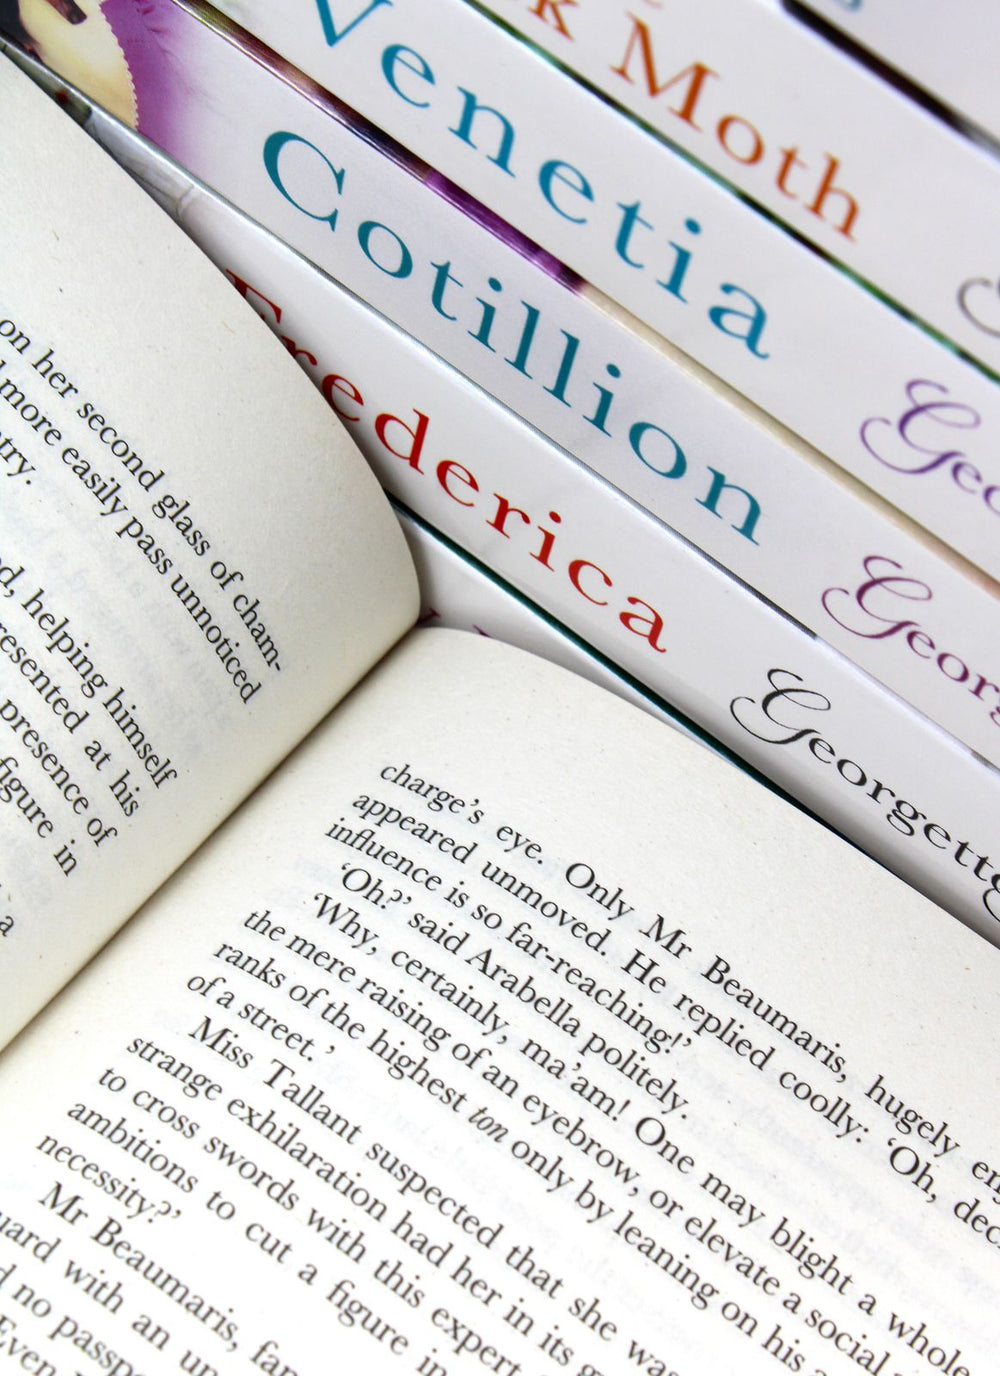 k Moth
Venetia
Geo
Cotillion
Georg
Frederica
Georgette
on her second glass of cham-
more easily pass unnoticed
try.
od, helping himself
resented at his
presence of
figure in
a
charge's eye. Only Mr Beaumaris, hugely en
appeared unmoved. He replied coolly: 'Oh, dec
influence is so far-reaching!'
'Oh?' said Arabella politely.
'Why, certainly, ma'am! One may blight a whole
the mere raising of an eyebrow, or elevate a social
ranks of the highest ton only by leaning on his
of a street.'
Miss Tallant suspected that she was
strange exhilaration had her in its g
to cross swords with this expert
ambitions to cut a figure in
necessity?'
Mr Beaumaris, fan
uard with an un
d no passpo
Even